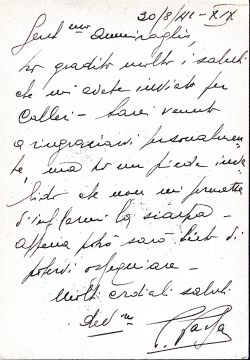 30/8/41-XIX
Gent.mo ammiraglio,
ho gradito molto i saluti
che mi avete inviato per
Calleri - Sarei venuto
a ringraziarvi personalmen
te, ma ho un piede inva
lido che non mi permette
d'infilarmi la scarpa -
appena potrò sarò lieto di
potervi ossequiare -
Molti cordiali saluti
dev.m